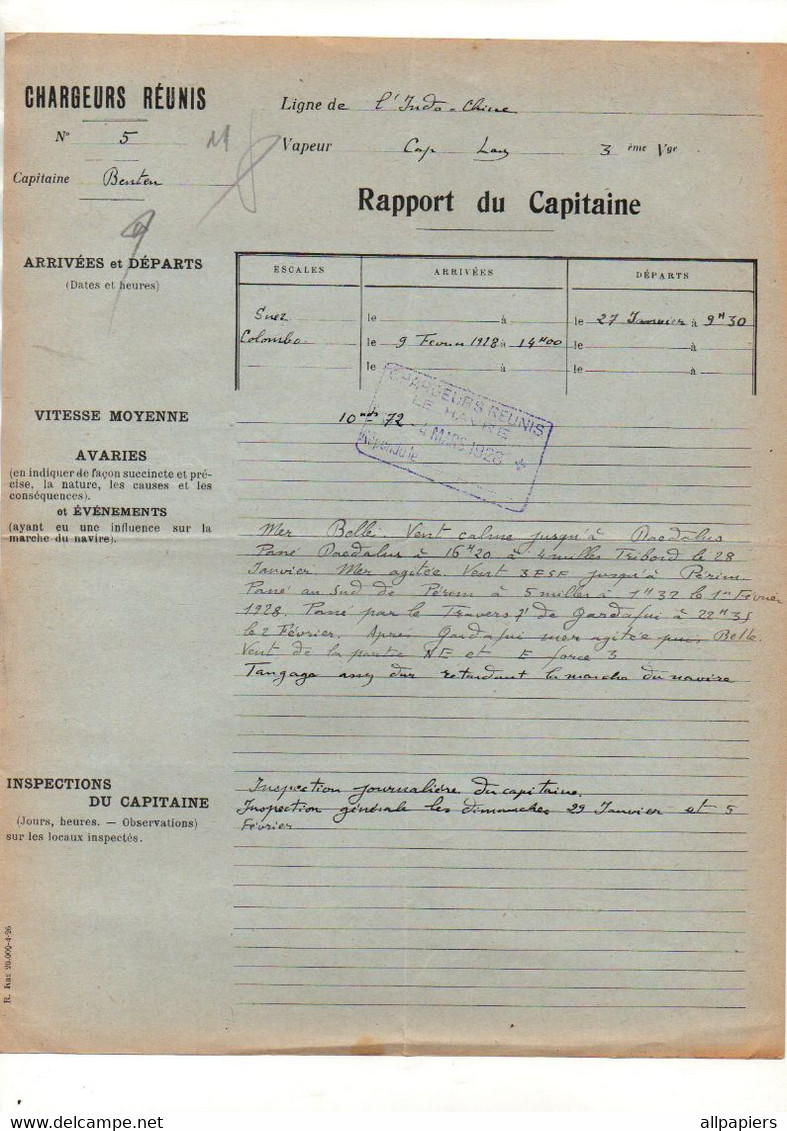 CHARGEURS RÉUNIS
N° 5
11
Capitaine Benten
Ligne de l'Indo-Chine
Vapeur Cap Lay 3 ème Vge
Rapport du Capitaine
ARRIVÉES et DÉPARTS
(Dates et heures)
ESCALES ARRIVÉES DÉPARTS
Suez le à le 27 Janvier à 9H30
Colombo le 9 Fevrier 1928 à 14H00 le à
le à le à
VITESSE MOYENNE
10 nds 72
CHARGEURS RÉUNIS
LE HAVRE
4 MARS 1928
Répondu le
AVARIES
(en indiquer de façon succincte et pré-
cise, la nature, les causes et les
conséquences).
et ÉVÉNEMENTS
(ayant eu une influence sur la
marche du navire).
Mer Belle. Vent calme jusqu'à Daedalus
Passé Daedalus à 16H20 à 4 milles Tribord le 28
Janvier. Mer agitée. Vent SESE jusqu'à Périm
Passé au Sud de Périm à 5 milles à 1H32 le 1er Février
1928. Passé par le Travers de Gardafui à 22H35
le 2 Février. Après Gardafui mer agitée puis Belle.
Vent de la partie NE et E force 3
Tangage assez dur retardant la marche du navire
INSPECTIONS
DU CAPITAINE
(Jours, heures. — Observations)
sur les locaux inspectés.
Inspection journalière du capitaine.
Inspection générale les dimanches 29 Janvier et 5
Février
R. Kaz 20-000-4-26
allpapiers